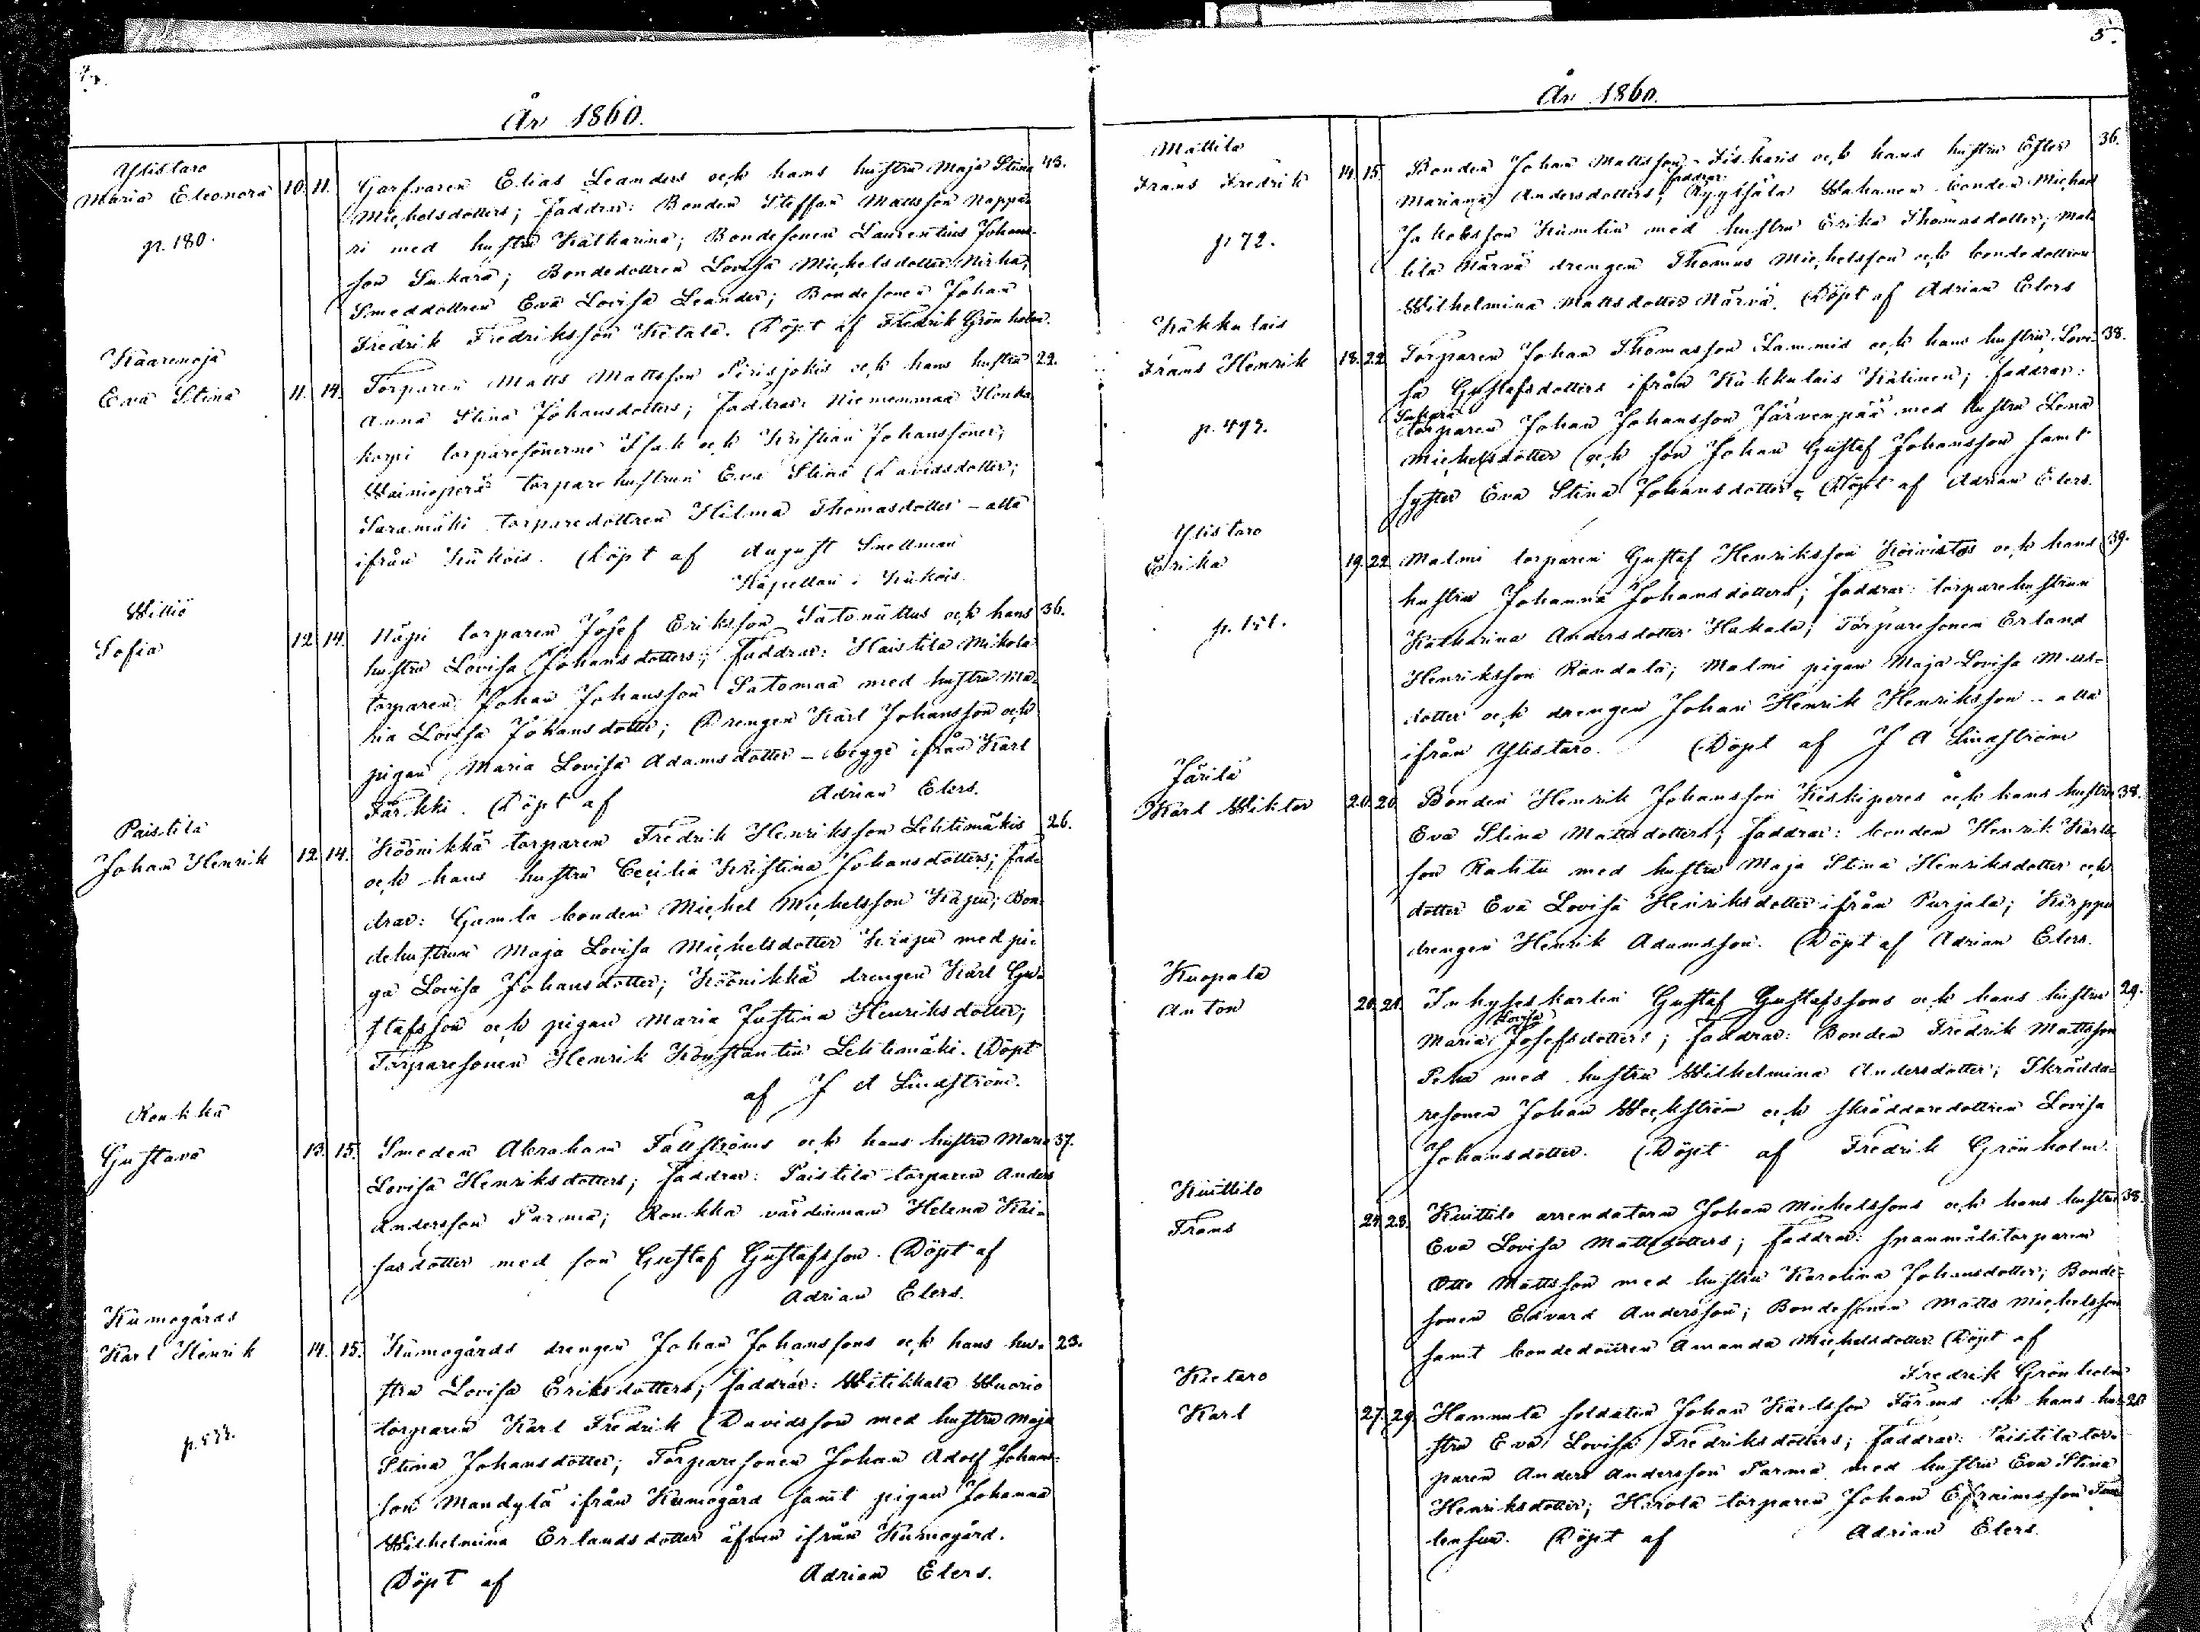 År 1860.
Ylistaro
Maria Eleonora 10. 11. Garfvaren Elias Leanders och hans hustru Maja Stina 43.
p. 180.
Michelsdotters; faddrar: Bonden Steffan Mattsson Nappa-
ri med hustru Katharina; Bondesonen Laurentius Johans-
son Sukara; Bondedottren Lovisa Michelsdotter
Smeddottren Eva Lovisa Leander; Bondesonen Johan
Fredrik Fredriksson Ketala. Döpt af Fredrik Grönholm.
Kaarenoja
Eva Stina 11. 14. Torparen Matts Mattsson Pirisjokis och hans hustru 22.
Anna Stina Johansdotters; faddrar: Niemenmaa Honka-
korpi torparesönerne Isak och Kristian Johanssöner;
Wainioperä torparehustrun Eva Stina Davidsdotter;
Saramäki torparedottren Hilma Thomasdotter – alla
ifrån Kukois. Döpt af August Snellman
Kapellan i Kukois.
Willio
Sofia 12. 14. Näpi torparen Josef Eriksson Salonüttus och hans 36.
hustru Lovisa Johansdotters; faddrar: Haistila Mikola
torparen Johan Johansson Salomaa med hustru Ma-
ria Lovisa Johansdotter; Drengen Karl Johansson och
pigan Maria Lovisa Adamsdotter – begge ifrån Karl
Jarkki. Döpt af Adrian Elers.
Paistila
Johan Henrik 12. 14. Köönikkä torparen Fredrik Henriksson Lehtimäkis 26.
och hans hustru Cecilia Kristina Johansdotters; fad-
drar: Gamla bonden Michel Michelsson Krapu; Bon-
dehustrun Maja Lovisa Michelsdotter Krapu med pi-
ga Lovisa Johansdotter; Köönikkä drengen Karl Gu-
stafsson och pigan Maria Justina Henriksdotter;
Torparesonen Henrik Konstantin Lehtimäki. Döpt
af J A Lindström.
Ronkka
Gustava 13. 15. Smeden Abraham Fallströms och hans hustru Maria 37.
Lovisa Henriksdotters; faddrar: Paistila torparen Anders
Andersson Parma; Ronkka värdinnan Helena Kai-
sasdotter med son Gustaf Gustafsson. Döpt af
Adrian Elers.
Kumogårds
Karl Henrik 14. 15. Kumogårds drengen Johan Johanssons och hans hu- 23.
p. 533.
stru Lovisa Eriksdotters; faddrar: Witikkala Wuorio
torparen Karl Fredrik Davidsson med hustru Maja
Stina Johansdotter; Torparesonen Johan Adolf Johans-
son Mandylä ifrån Kumogård samt pigan Johanna
Wilhelmina Erlandsdotter äfven ifrån Kumogård.
Döpt af Adrian Elers.
5.
År 1860.
Mattila
Frans Fredrik 14. 15. Bonden Johan Mattsson Fiskaris och hans hustru Ester 36.
p 72.
faddrar:
Mariana Andersdotters; Wahanen bonden Michael
Jakobsson Kumlin med hustru Erika Thomasdotter; Mat-
tila Närvä drengen Thomas Michelsson och bondedottren
Wilhelmina Mattsdotter Närvä. Döpt af Adrian Elers
Kukkulais
Frans Henrik 18. 22. Torparen Johan Thomasson Lammis och hans hustru Lovi- 38.
p. 493.
sa Gustafsdotters ifrån Kukkulais Kälinen; faddrar:
Sukara
torparen Johan Johansson Järvenpää med hustru Lena
Michelsdotter och son Johan Gustaf Johansson samt
syster Eva Stina Johansdotter. Döpt af Adrian Elers.
Ylistaro
Erika 19. 22. Malmi torparen Gustaf Henriksson Koivistos och hans 39.
p. 151.
hustru Johanna Johansdotters; faddrar: torparehustrun
Katharina Andersdotter Hakala; Torparesonen Erland
Henriksson Randala; Malmi pigan Maja Lovisa Matts-
dotter och drengen Johan Henrik Henriksson – alla
ifrån Ylistaro. Döpt af J A Lindström
Järilä
Karl Wiktor 20. 20. Bonden Henrik Johansson Keskiperes och hans hustru 38.
Eva Stina Mattsdotters; faddrar: bonden Henrik Karls-
son Rahtu med hustru Maja Stina Henriksdotter och
dotter Eva Lovisa Henriksdotter ifrån Purjala; Karppu
drengen Henrik Adamsson. Döpt af Adrian Elers.
Kuopala
Anton 20. 21. Inhyseskarlen Gustaf Gustafssons och hans hustru 29.
Lovisa
Maria Josefsdotters; faddrar: Bonden Fredrik Mattsson
Peha med hustru Wilhelmina Andersdotter; Skrädda-
resonen Johan Weckström och skräddaredottren Lovisa
Johansdotter. Döpt af Fredrik Grönholm.
Kuittilo
Frans 24. 28. Kuittilo arrendatorn Johan Michelssons och hans hustru 38.
Eva Lovisa Mattsdotters; faddrar: spanmålstorparen
Otto Mattsson med hustru Karolina Johansdotter; Bonde-
sonen Edvard Andersson; Bondesonen Matts Michelsson
samt bondedottren Amanda Michelsdotter. Döpt af
Fredrik Grönholm
Kietaro
Karl 27. 29. Hannula soldaten Johan Karlsson Färms och hans hu- 28
stru Eva Lovisa Fredriksdotters; faddrar: Paistila tor-
paren Anders Andersson Parma med hustru Eva Stina
Henriksdotter; Harola torparen Johan Efraimsson
Döpt af Adrian Elers.